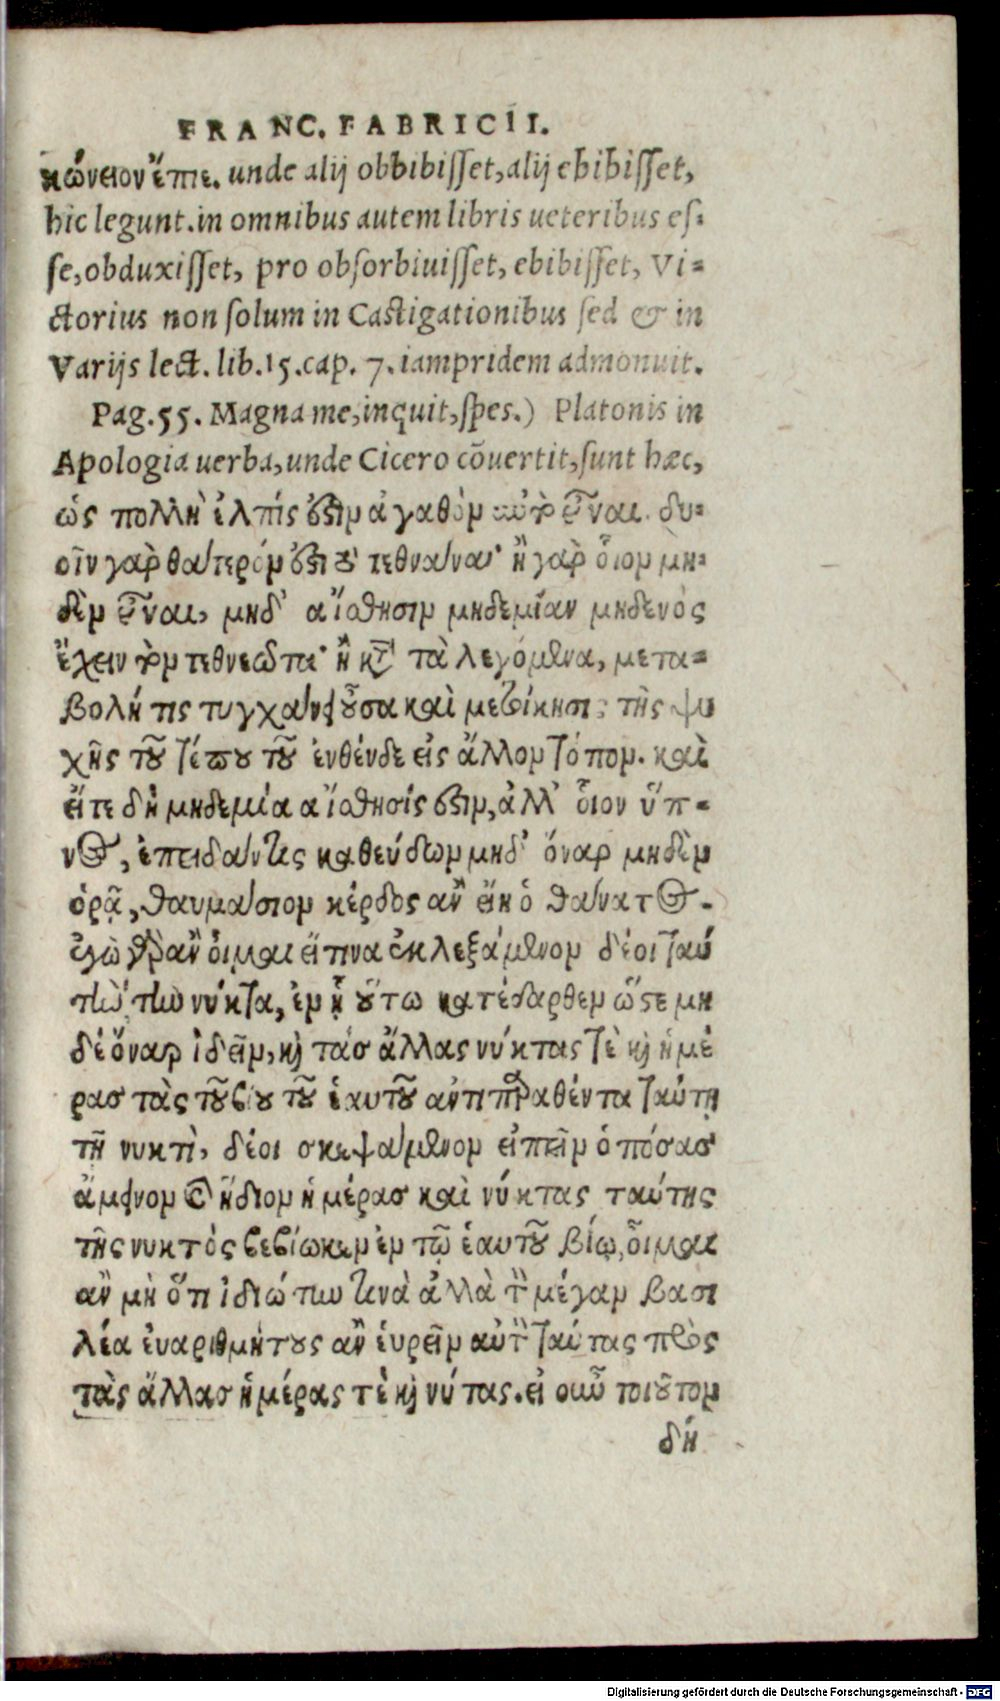 FRANC. FABRICII.
κώνειον ἔπιε. unde alij obbibisset, alij ebibisset,
hic legunt. in omnibus autem libris ueteribus es=
se, obduxisset, pro obsorbiuisset, ebibisset, Vi=
ctorius non solum in Castigationibus sed & in
Varijs lect. lib. 15. cap. 7. iampridem admonuit.
Pag. 55. Magna me, inquit, spes.) Platonis in
Apologia uerba, unde Cicero cōuertit, sunt hæc,
ὡς πολλὴ ἐλπίς ἐστιν ἀγαθὸν αὐτὸ εἶναι. δυ=
οῖν γὰρ θάτερόν ἐστι τὸ τεθνάναι· ἢ γὰρ οἷον μη=
δὲν εἶναι, μηδ' αἴσθησιν μηδεμίαν μηδενὸς
ἔχειν τὸν τεθνεῶτα· ἢ κτ̃ τὰ λεγόμενα, μετα=
βολή τις τυγχάνει οὖσα καὶ μετοίκησις τῆς ψυ
χῆς τοῦ τόπου τοῦ ἐνθένδε εἰς ἄλλον τόπον. καὶ
εἴτε δὴ μηδεμία αἴσθησίς ἐστιν, ἀλλ' οἷον ὕπ=
νος, ἐπειδάν τις καθεύδων μηδ' ὄναρ μηδὲν
ὁρᾷ, θαυμάσιον κέρδος ἂν εἴη ὁ θάνατος.
ἐγὼ γὰρ ἂν οἶμαι εἴ τινα ἐκλεξάμενον δέοι ταύ
τὴν τὴν νύκτα, ἐν ᾗ οὕτω κατέδαρθεν ὥστε μη
δέ ὄναρ ἰδεῖν, κὶ τάς ἄλλας νύκτας τὲ κὶ ἡμέ
ρας τὰς τοῦ βίου τοῦ ἑαυτοῦ ἀντιπαραθέντα ταύτῃ
τῇ νυκτὶ, δέοι σκεψάμενον εἰπεῖν ὁπόσας
ἄμεινον καὶ ἥδιον ἡμέρας καὶ νύκτας ταύτης
τῆς νυκτὸς βεβίωκεν ἐν τῷ ἑαυτοῦ βίῳ, οἶμαι
ἂν μὴ ὅτι ἰδιώτην τινὰ ἀλλὰ τὸν μέγαν βασι
λέα ἐναριθμήτους ἂν εὑρεῖν αὐτὸν ταύτας πρὸς
τὰς ἄλλας ἡμέρας τὲ κὶ νύτας. εἰ οὖν τοιοῦτον
δή
Digitalisierung gefördert durch die Deutsche Forschungsgemeinschaft - DFG